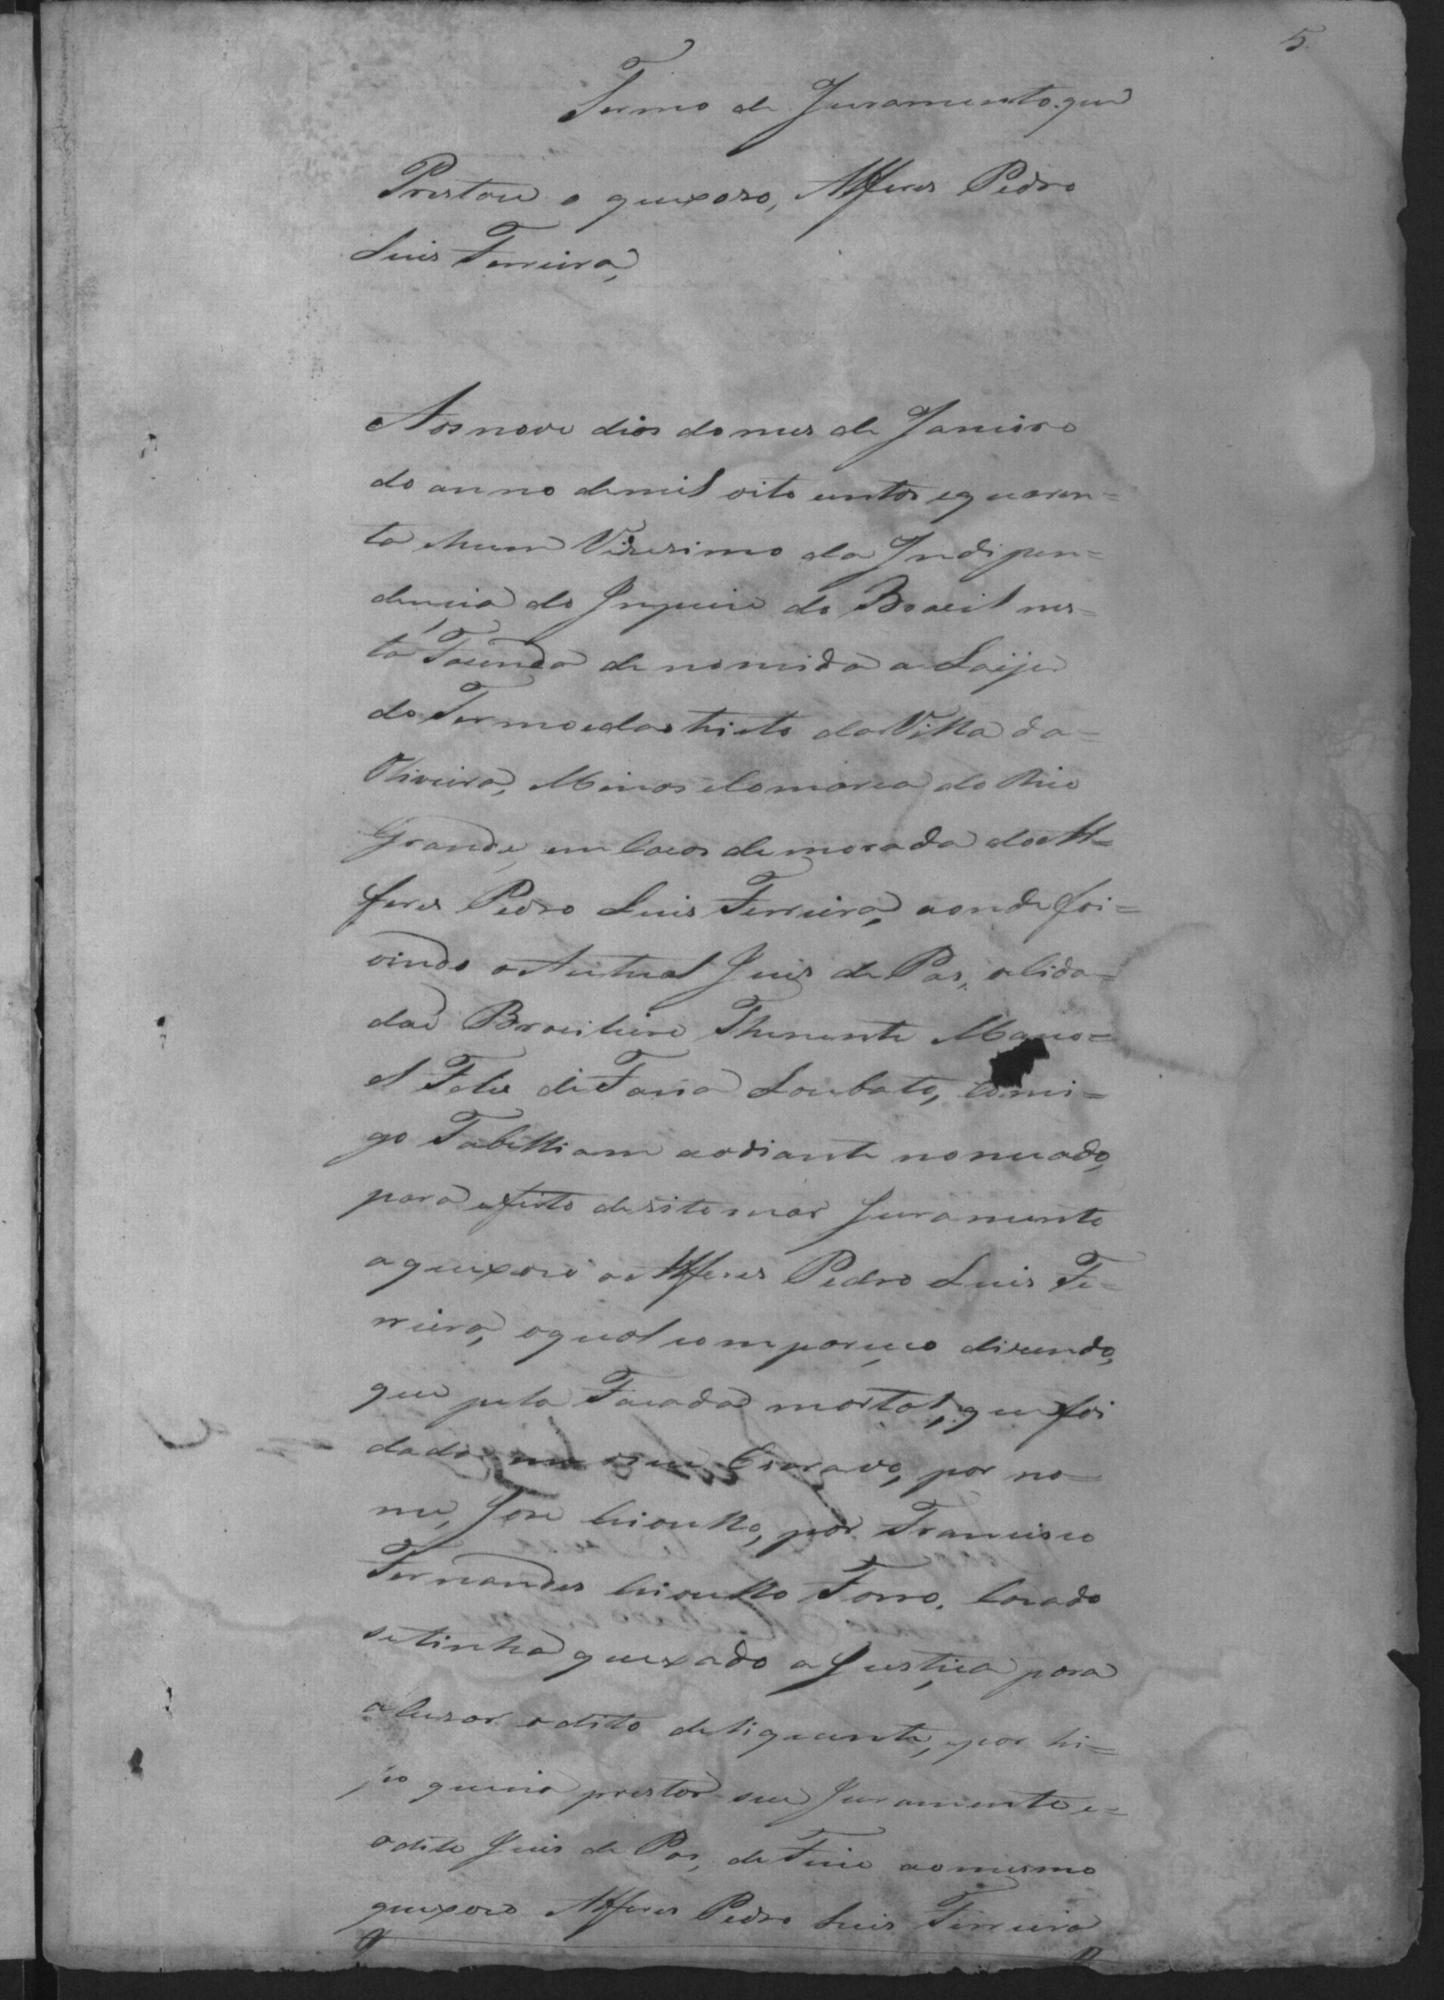 5
Termo de Juramento que
Prestou o queixoso, Alferes Pedro
Luis Ferreira,
Aos nove dias do mes de Janeiro
do anno de mil oito centos e quaren=
ta e hum Vigesimo da Indipen=
dencia do Imperio do Brasil nes=
ta Fazenda de nomida a Laije
do Termo e destricto da Villa da
Oliveira, Minas e Comarca do Rio
Grande, em Cazas de morada do Al=
feres Pedro Luis Ferreira, aonde foi=
vindo o Autual Juis de Pas, o Cida=
dao Brasileiro Thenente Mano=
el Felis de Faria Loubato, Comi=
go Tabelliam aodiante nomeado,
para efeito de se tomar Juramento
a queixoso o Alferes Pedro Luis Fe=
rreira, o qual compareceo dizendo,
que pela Facada mortal, que foi
dada seu Escravo, por no=
me, Jose Crioullo, por Francisco
Fernandes Crioullo Forro, Cazado
se tinha queixado a Justiça para
acusar o dito deliquente, e por hi=
ço queria prestar seu Juramento e=
o dito Juis de Pas, de Firio ao mesmo
queixoso Alferes Pedro Luis Ferreira